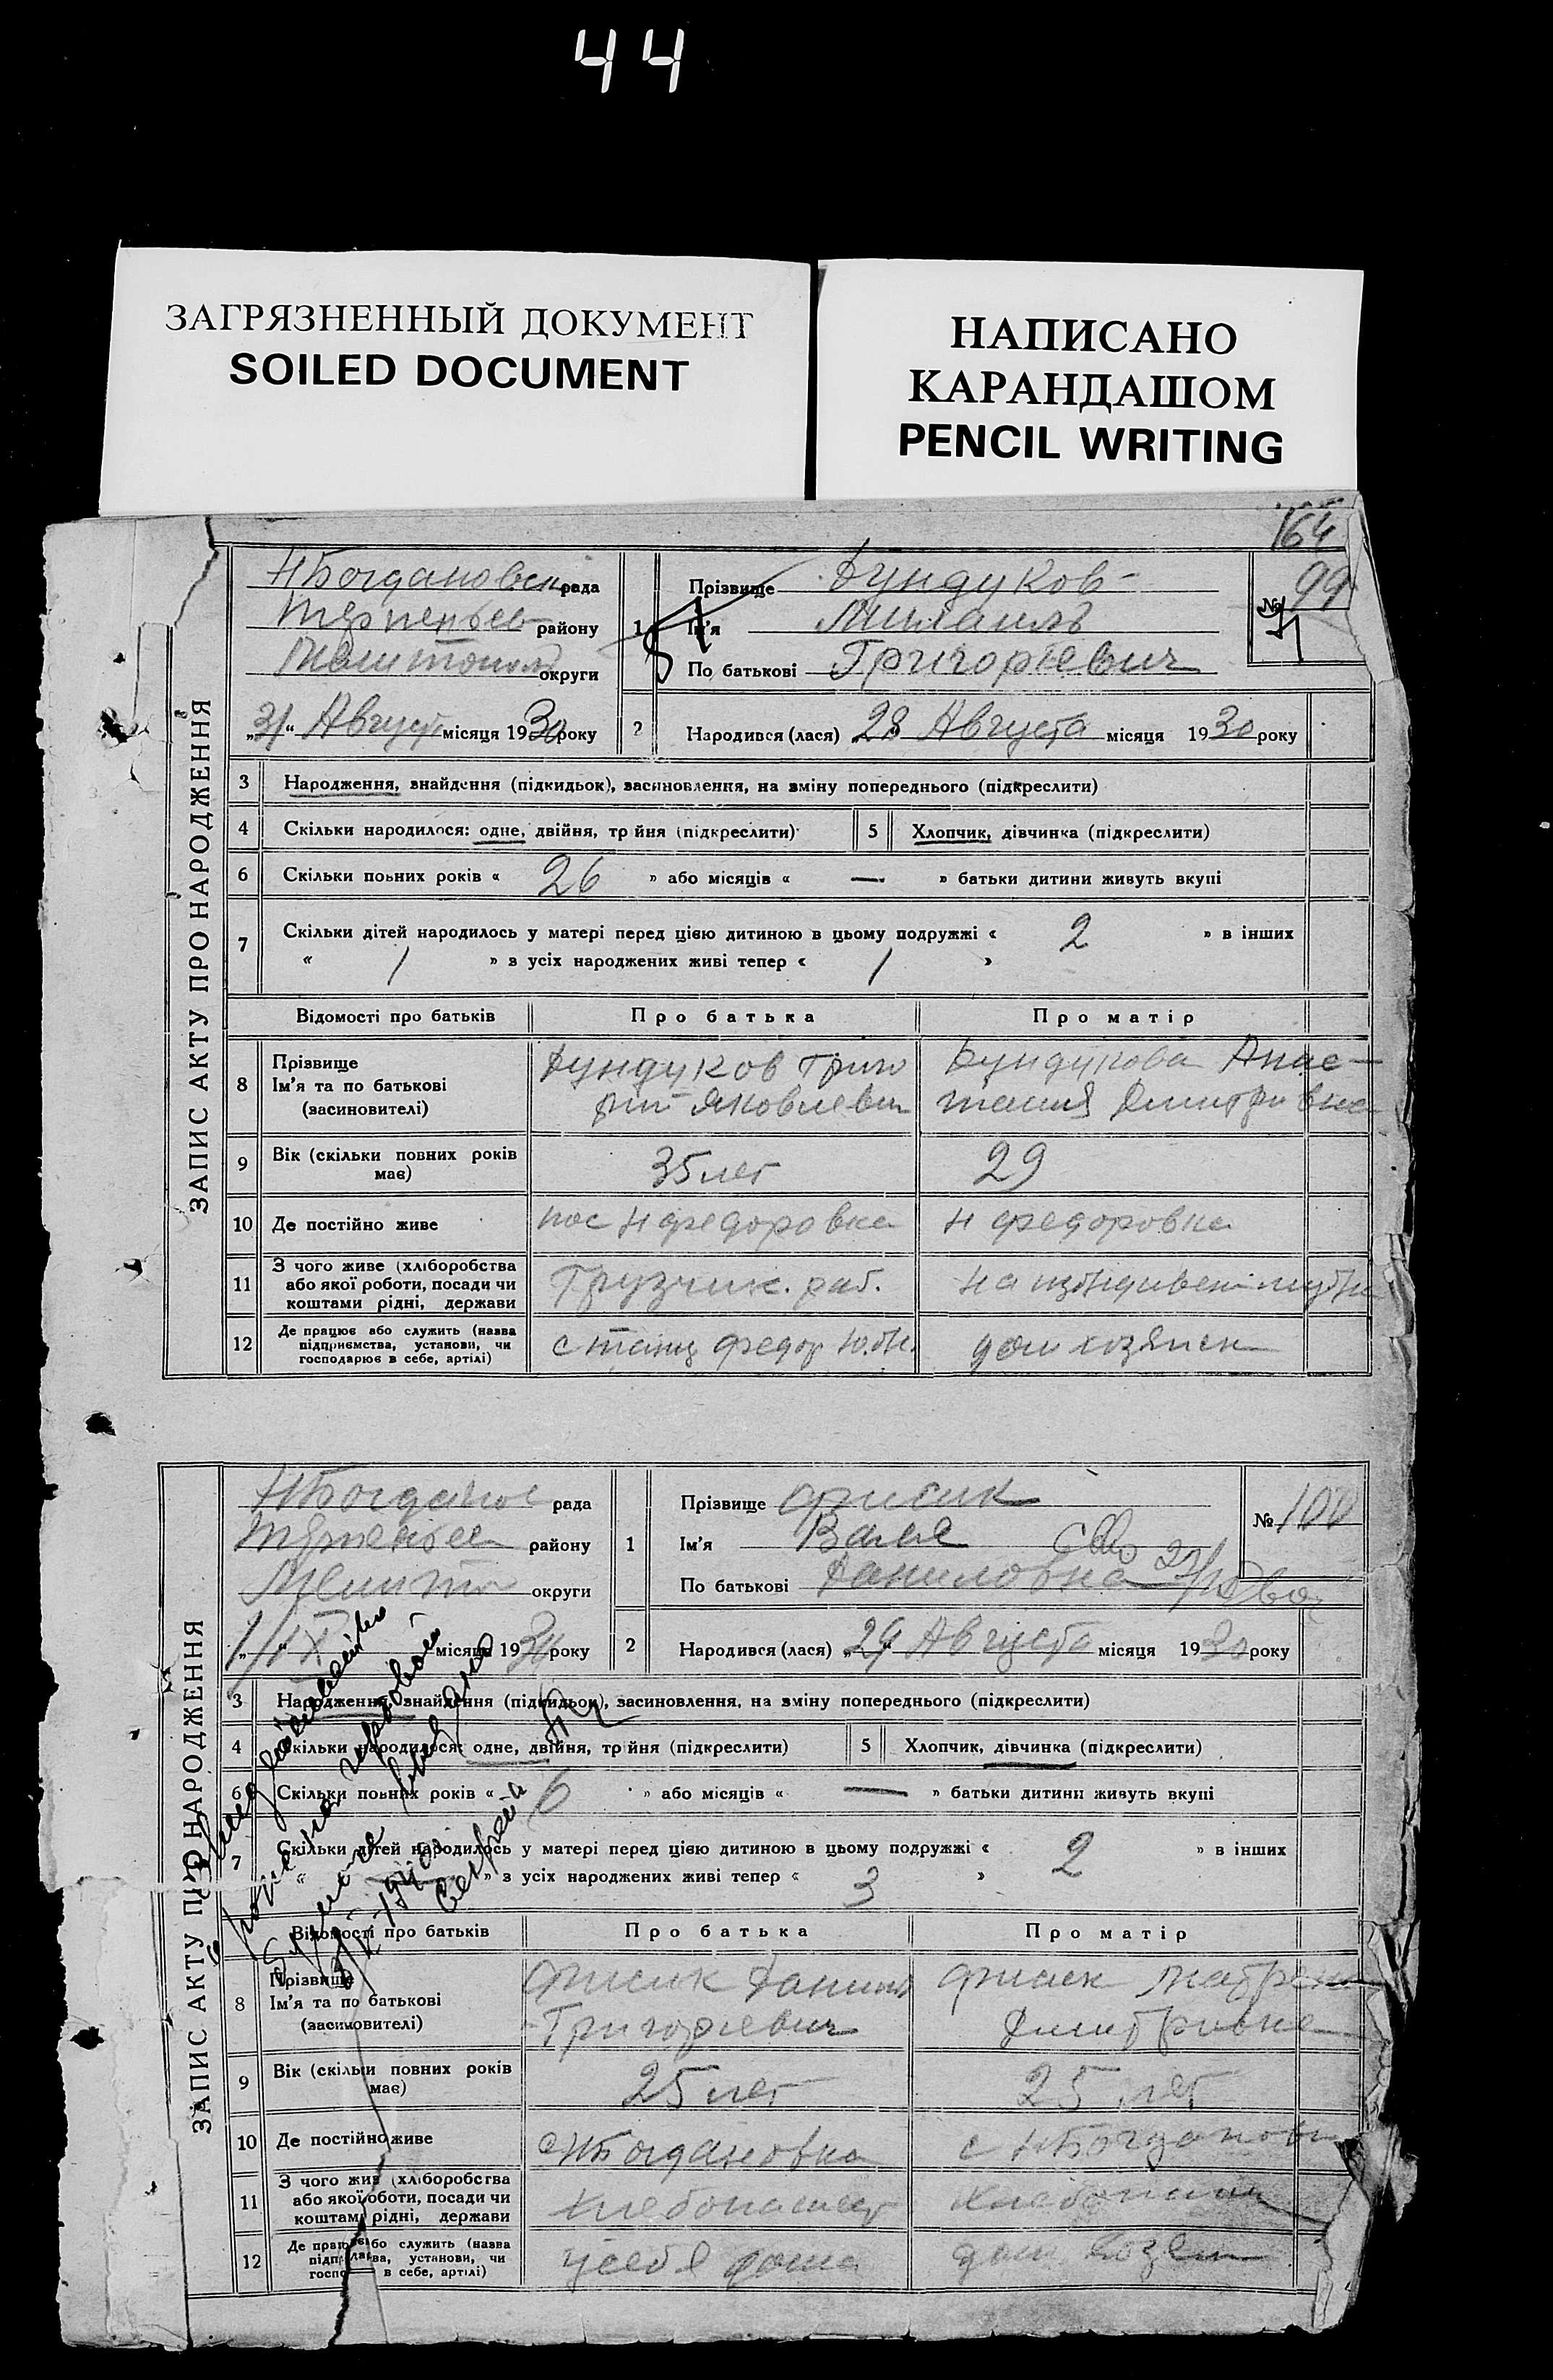 44
ЗАГРЯЗНЕННЫЙ ДОКУМЕНТ
SOILED DOCUMENT
НАПИСАНО
КАРАНДАШОМ
PENCIL WRITING
164
ЗАПИС АКТУ ПРО НАРОДЖЕННЯ
НБогдановск рада
Терпеньев району
Мелитополь округи
„31“ Август місяця 1930 року
1 Прізвище Дундуков
Ім’я Михаилъ
По батькові Григорьевич
№ 99
71
2 Народився (лася) 28 Августа місяця 1930 року
3 Народження, знайдення (підкидьок), засиновлення, на зміну попереднього (підкреслити)
4 Скільки народилося: одне, двійня, трійня (підкреслити) 5 Хлопчик, дівчинка (підкреслити)
6 Скільки повних років « 26 » або місяців « — » батьки дитини живуть вкупі
7 Скільки дітей народилось у матері перед цією дитиною в цьому подружжі « 2 » в інших
« 1 » з усіх народжених живі тепер « 1 »
Відомості про батьків Про батька Про матір
8 Прізвище
Ім’я та по батькові
(засиновителі)
Дундуков Григо
рий Яковлевич
Дундукова Анас-
тасия Дмитриевна
9 Вік (скільки повних років
має) 35 лет 29
10 Де постійно живе пос Нфедоровка Н федоровка
11 З чого живе (хліборобства
або якої роботи, посади чи
коштами рідні, держави
Грузчик. раб. на иждивени мужа
12 Де працює або служить (назва
підприємства, установи, чи
господарює в себе, артілі)
станц федор дом хозяйк
ЗАПИС АКТУ ПРО НАРОДЖЕННЯ
НБогданов рада
Терпеньев району
Мелито округи
„1“ IX місяця 1930 року
1 Прізвище Фисик
Ім’я Валя
По батькові Даниловна
№ 100
2 Народився (лася) „29“ Августа місяця 1930 року
3 Народження, знайдення (підкидьок), засиновлення, на зміну попереднього (підкреслити)
4 Скільки народилося: одне, двійня, трійня (підкреслити) 5 Хлопчик, дівчинка (підкреслити)
6 Скільки повних років « 6 » або місяців « — » батьки дитини живуть вкупі
7 Скільки дітей народилось у матері перед цією дитиною в цьому подружжі « 2 » в інших
« » з усіх народжених живі тепер « 3 »
Відомості про батьків Про батька Про матір
8 Прізвище
Ім’я та по батькові
(засиновителі)
Фисик Данил
Григорьевич
Фисик Матрена
Дмитровна
9 Вік (скільки повних років
має) 25 лет 25 лет
10 Де постійно живе с НБогдановка с НБогдановк
11 З чого живе (хліборобства
або якої роботи, посади чи
коштами рідні, держави
хлебопашец хлебопаш
12 Де працює або служить (назва
підприємства, установи, чи
господарює в себе, артілі)
у себя дома дом хозяй